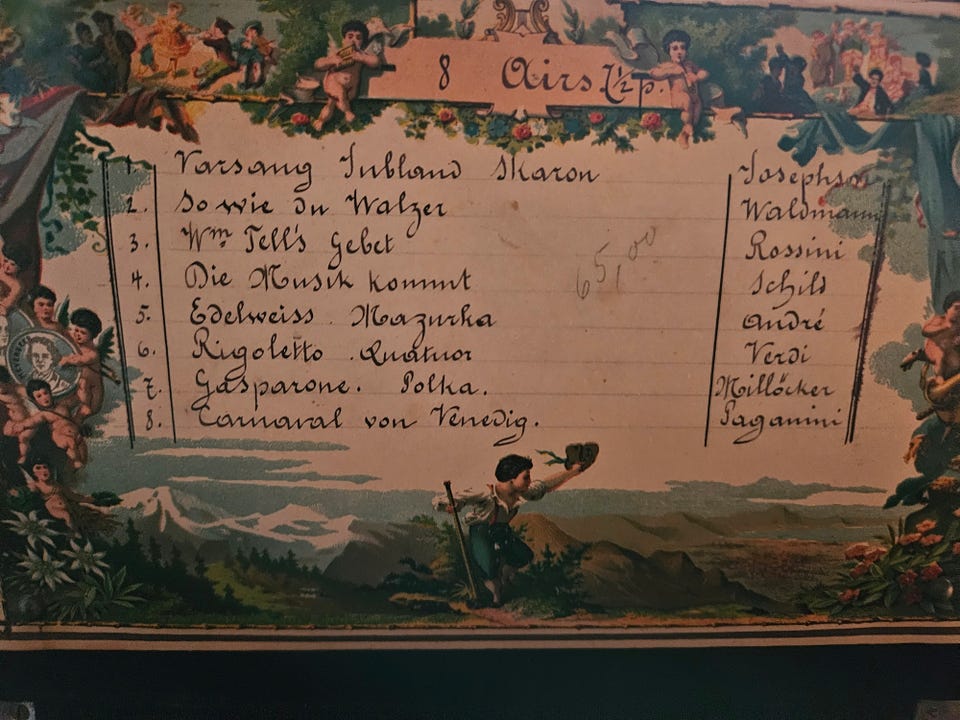 8 Airs Zitp.
1. Varsang Jubland Skaron Josephson
2. So wie Du Walzer Waldmann
3. Wm Tell's Gebet Rossini
4. Die Musik kommt Schild
65,00
5. Edelweiss. Mazurka André
6. Rigoletto. Quatuor Verdi
7. Gasparone. Polka. Millöcker
8. Carnaval von Venedig. Paganini